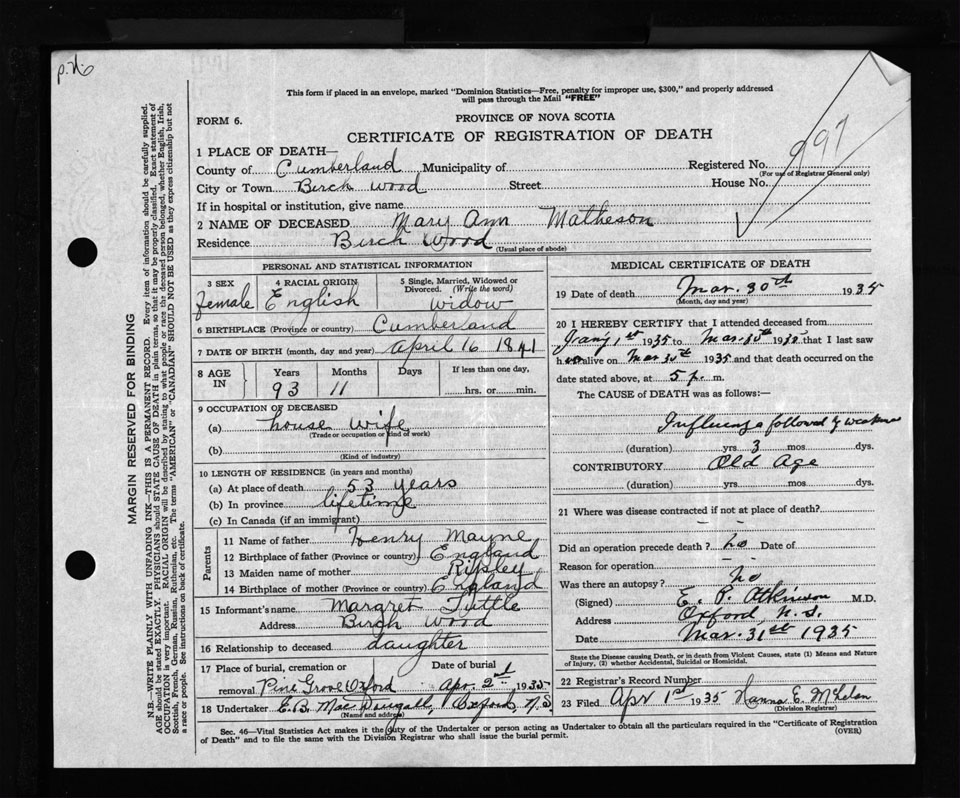 P.N.6
This form if placed in an envelope, marked "Dominion Statistics—Free, penalty for improper use, $300," and properly addressed
will pass through the Mail "FREE"
FORM 6.
PROVINCE OF NOVA SCOTIA
CERTIFICATE OF REGISTRATION OF DEATH
997
1 PLACE OF DEATH—
County of Cumberland Municipality of Registered No.
(For use of Registrar General only)
City or Town Birch Wood Street House No.
If in hospital or institution, give name
2 NAME OF DECEASED Mary Ann Matheson
Residence Birch Wood
(Usual place of abode)
PERSONAL AND STATISTICAL INFORMATION
3 SEX 4 RACIAL ORIGIN 5 Single, Married, Widowed or
Divorced. (Write the word)
female English widow
6 BIRTHPLACE (Province or country) Cumberland
7 DATE OF BIRTH (month, day and year) April 16 1841
8 AGE IN Years Months Days If less than one day,
93 11 hrs. or min.
9 OCCUPATION OF DECEASED
(a) house wife
(Trade or occupation or kind of work)
(b)
(Kind of industry)
10 LENGTH OF RESIDENCE (in years and months)
(a) At place of death 53 years
(b) In province lifetime
(c) In Canada (if an immigrant)
Parents
11 Name of father Henry Mayne
12 Birthplace of father (Province or country) England
13 Maiden name of mother Ripley
14 Birthplace of mother (Province or country) England
15 Informant's name Margret Tuttle
Address Birch Wood
16 Relationship to deceased daughter
17 Place of burial, cremation or Date of burial
removal Pine Grove Oxford Apr. 2nd 1935
18 Undertaker E.B. MacDougall, Oxford, N.S.
(Name and address)
MEDICAL CERTIFICATE OF DEATH
19 Date of death Mar. 30th 1935
(Month, day and year)
20 I HEREBY CERTIFY that I attended deceased from
Jany 1st 1935 to Mar. 30th 1935 that I last saw
her alive on Mar 30th 1935 and that death occurred on the
date stated above, at 5 p. m.
The CAUSE of DEATH was as follows:—
Influenza followed by weakness
(duration) yrs 3 mos dys.
CONTRIBUTORY Old Age
(duration) yrs mos dys.
21 Where was disease contracted if not at place of death?
Did an operation precede death? no Date of
Reason for operation
Was there an autopsy? no
(Signed) E. P. Atkinson M.D.
Address Oxford, N.S.
Date Mar. 31st 1935
State the Disease causing Death, or in death from Violent Causes, state (1) Means and Nature
of Injury, (2) whether Accidental, Suicidal or Homicidal.
22 Registrar's Record Number
23 Filed Apr 1st 1935 Hanna E. McLelan
(Division Registrar)
Sec. 46—Vital Statistics Act makes it the duty of the Undertaker or person acting as Undertaker to obtain all the particulars required in the "Certificate of Registration
of Death" and to file the same with the Division Registrar who shall issue the burial permit. (OVER)
MARGIN RESERVED FOR BINDING
N.B.—WRITE PLAINLY WITH UNFADING INK—THIS IS A PERMANENT RECORD. Every item of information should be carefully supplied.
AGE should be stated EXACTLY. PHYSICIANS should STATE CAUSE OF DEATH in plain terms, so that it may be properly classified. Exact statement of
OCCUPATION is very important. RACIAL ORIGIN will be described by stating to what people or race the deceased person belonged, whether English, Irish,
Scottish, French, German, Russian, Ruthenian, etc. The terms "AMERICAN" or "CANADIAN" SHOULD NOT BE USED as they express citizenship but not
a race or people. See instructions on back of certificate.